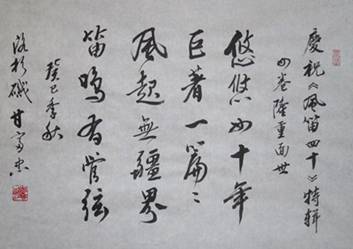 慶祝《風笛四十》特輯
四卷隆重面世
悠悠四十年
巨著一篇〻
風起無疆界
笛鳴有管弦
癸巳季秋
洛杉磯 甘